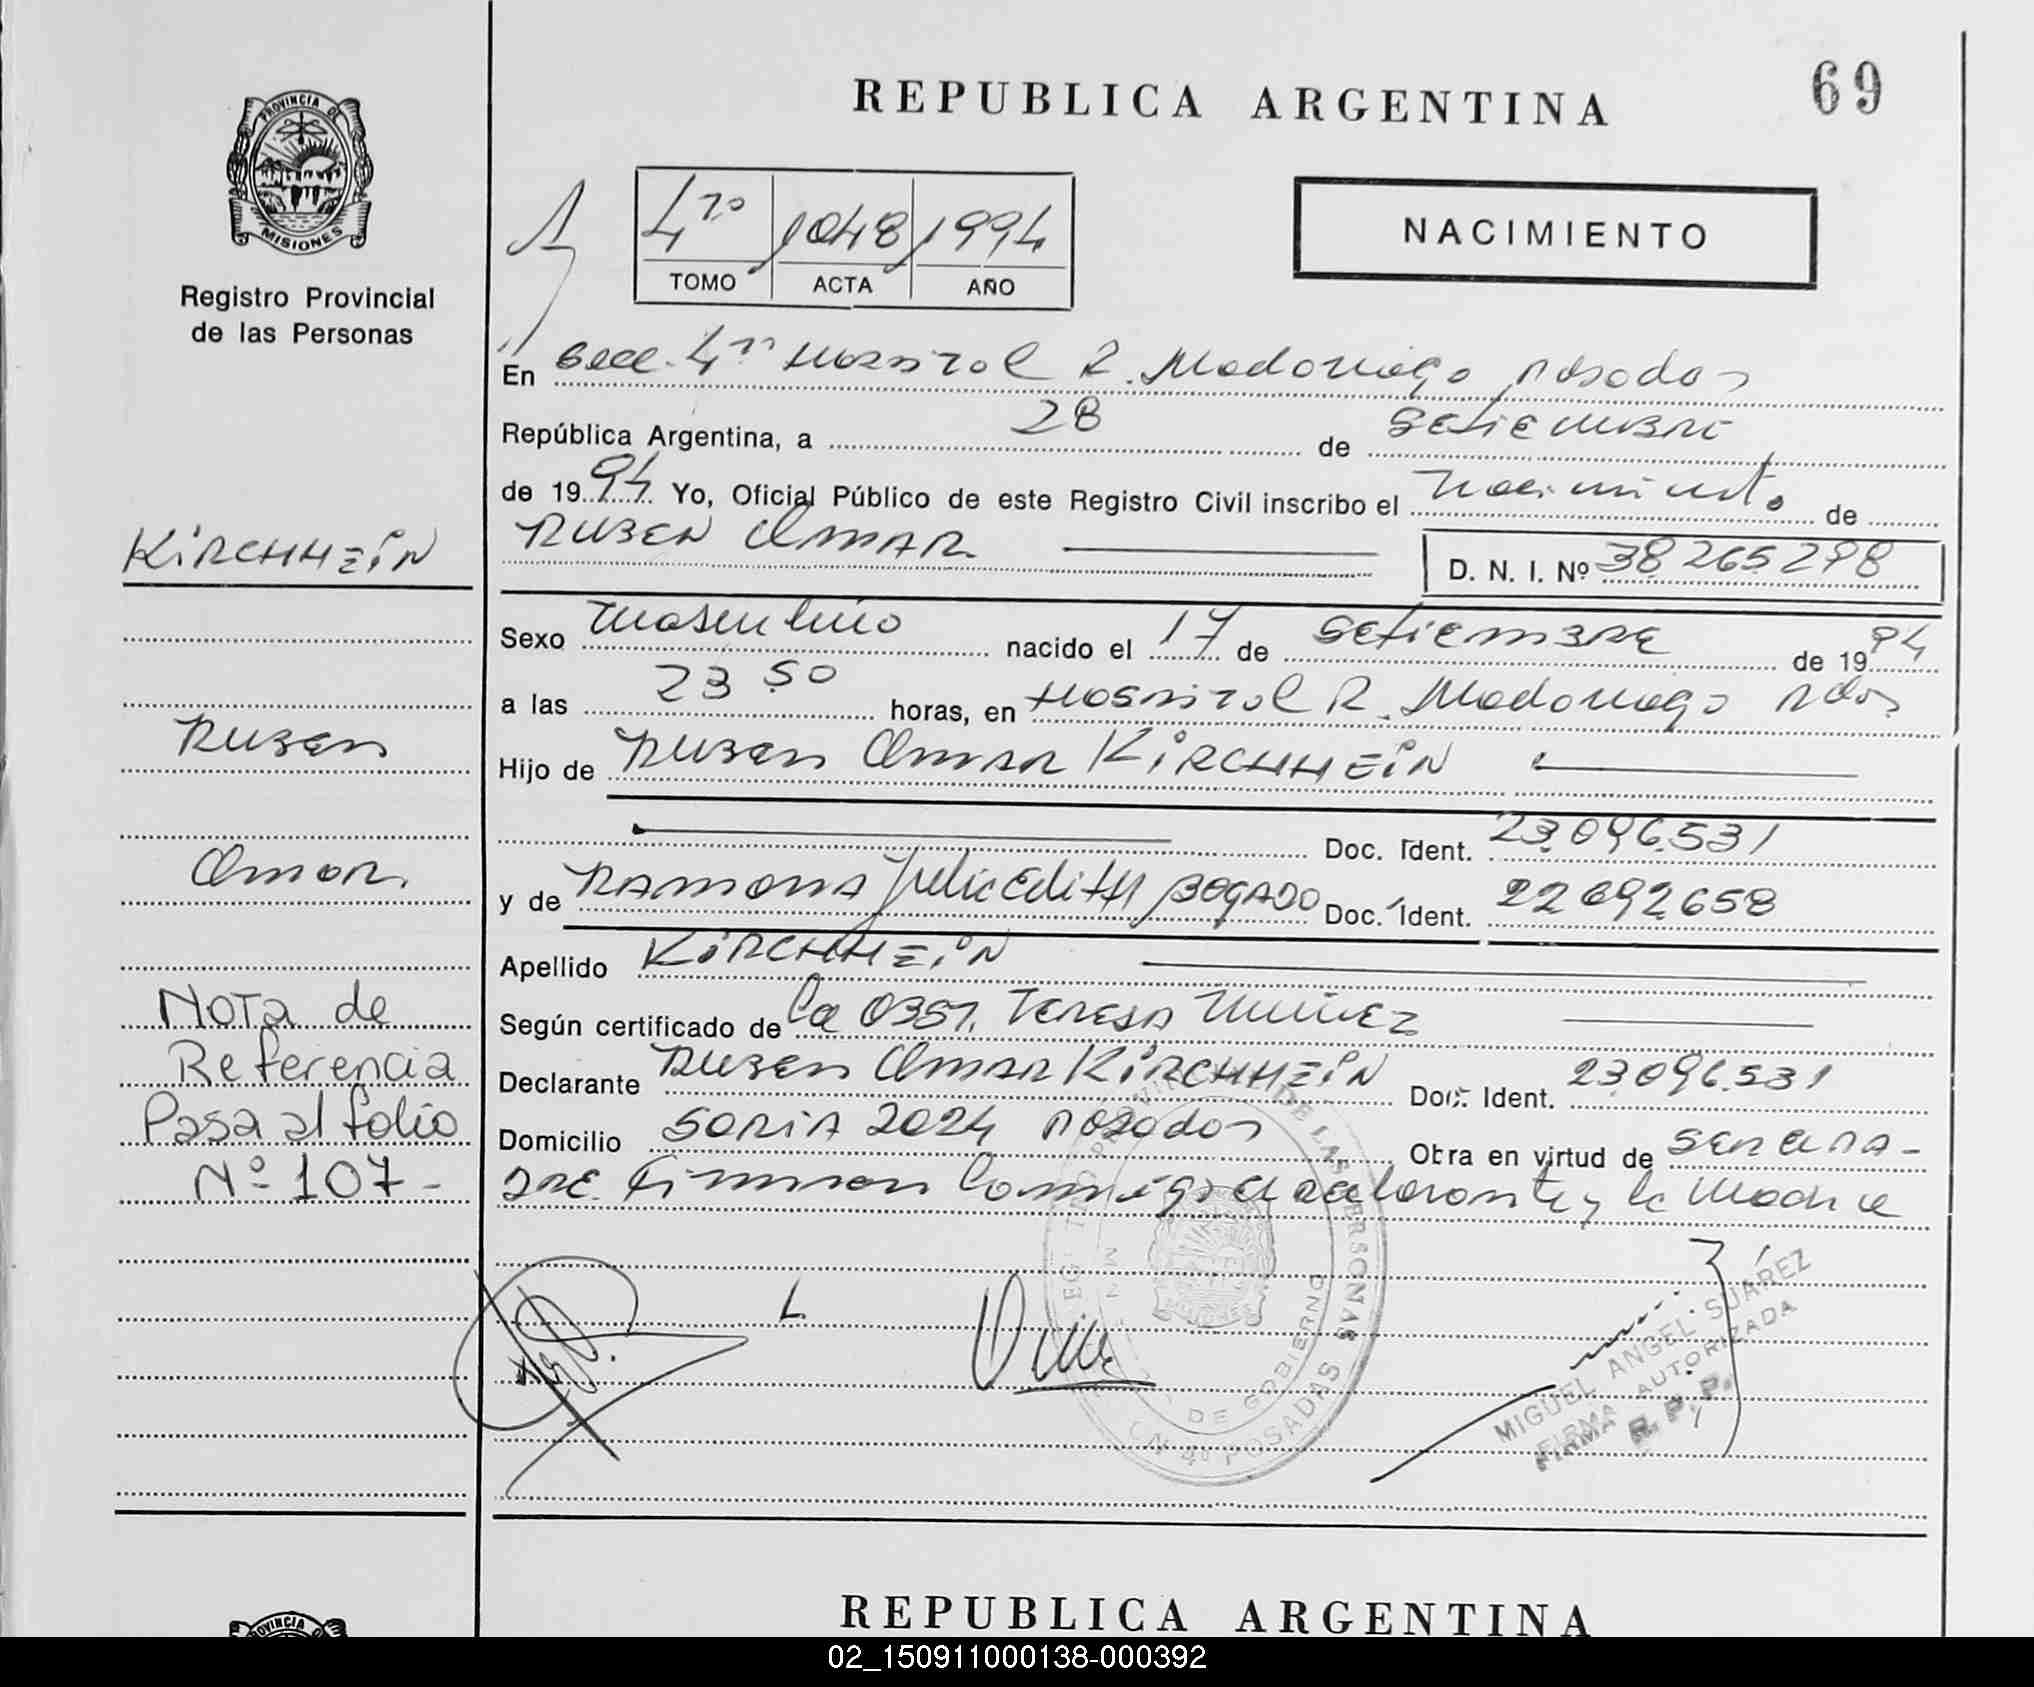 REPUBLICA ARGENTINA
69
PROVINCIA DE
MISIONES
Registro Provincial
de las Personas
4to 1048 1994
TOMO ACTA AÑO
NACIMIENTO
En Secc. 4ta Hospital R. Madariaga Posadas
República Argentina, a 28 de Setiembre
de 1994 Yo, Oficial Público de este Registro Civil inscribo el Nacimiento de
RUBEN OMAR
D. N. I. Nº 38265298
KIRCHHEIN
Sexo Masculino nacido el 17 de Setiembre de 1994
a las 23 50 horas, en Hospital R. Madariaga Pdas.
Ruben
Hijo de Ruben Omar KIRCHHEIN
Doc. Ident. 23.096.531
Omar.
y de RAMONA Julia Edith BOGADO Doc. Ident. 22692658
Apellido KIRCHHEIN
Según certificado de la Obst. Teresa Nuñez
Declarante Ruben Omar KIRCHHEIN Doc. Ident. 23.096.531
Domicilio SORIA 2024 Posadas Obra en virtud de ser el pa-
dre. Firman conmigo el declarante y la madre
Nota de
Referencia
Pasa al folio
Nº 107-
REGISTRO PROVINCIAL DE LAS PERSONAS
DE GOBIERNO
POSADAS
MIGUEL ANGEL SUAREZ
FIRMA AUTORIZADA
R. P. P.
REPUBLICA ARGENTINA
PROVINCIA
02_150911000138-000392